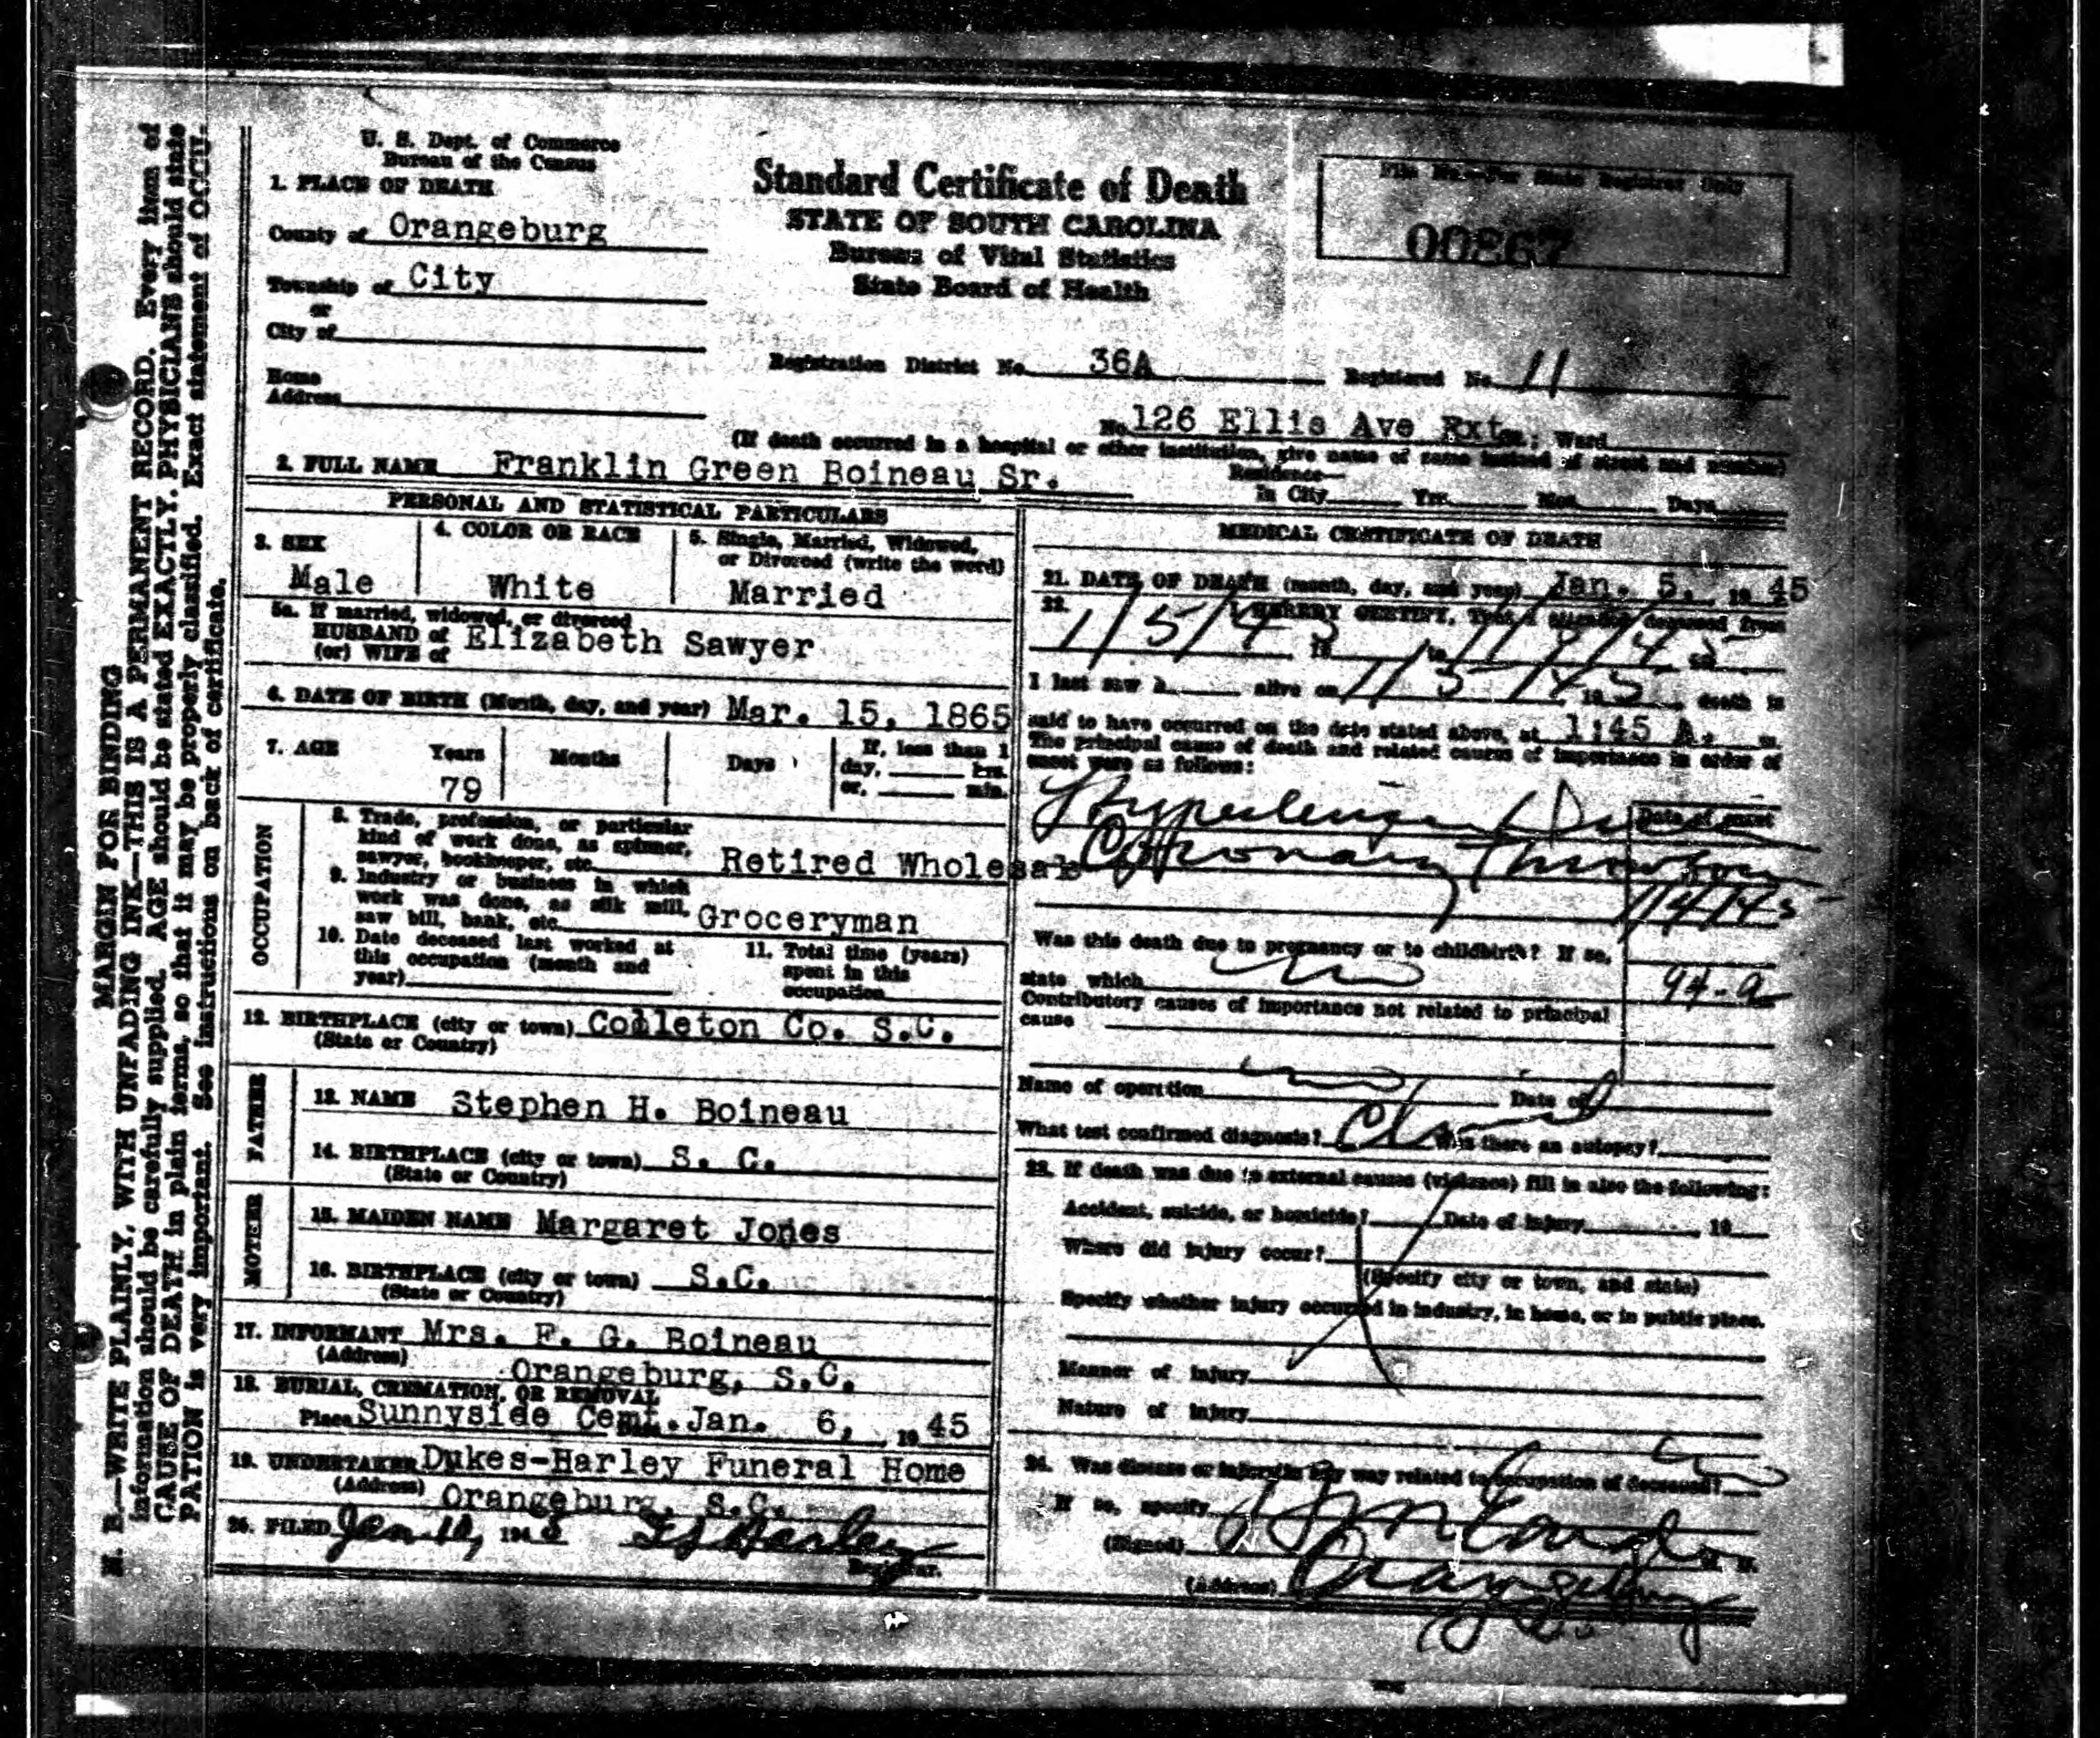 N. B.—WRITE PLAINLY, WITH UNFADING INK—THIS IS A PERMANENT RECORD. Every item of
information should be carefully supplied. AGE should be stated EXACTLY. PHYSICIANS should state
CAUSE OF DEATH in plain terms, so that it may be properly classified. Exact statement of OCCU-
PATION is very important. See instructions on back of certificate.
MARGIN FOR BINDING
U. S. Dept. of Commerce
Bureau of the Census
Standard Certificate of Death
STATE OF SOUTH CAROLINA
Bureau of Vital Statistics
State Board of Health
File No.—For State Registrar Only
00867
1. PLACE OF DEATH
County of Orangeburg
Township of City
or
City of
Home
Address
Registration District No. 36A Registered No. 11
No. 126 Ellis Ave Ext.; Ward
(If death occurred in a hospital or other institution, give name of same instead of street and number)
2. FULL NAME Franklin Green Boineau Sr.
Residence—
In City Yrs. Mos. Days
PERSONAL AND STATISTICAL PARTICULARS
3. SEX
Male
4. COLOR OR RACE
White
5. Single, Married, Widowed,
or Divorced (write the word)
Married
5a. If married, widowed, or divorced
HUSBAND of
(or) WIFE of Elizabeth Sawyer
6. DATE OF BIRTH (Month, day, and year) Mar. 15, 1865
7. AGE Years Months Days
79
If less than 1
day, hrs.
or, min.
OCCUPATION
8. Trade, profession, or particular
kind of work done, as spinner,
sawyer, bookkeeper, etc. Retired Wholesale
9. Industry or business in which
work was done, as silk mill,
saw bill, bank, etc. Groceryman
10. Date deceased last worked at
this occupation (month and
year)
11. Total time (years)
spent in this
occupation
12. BIRTHPLACE (city or town) Colleton Co. S.C.
(State or Country)
FATHER
13. NAME Stephen H. Boineau
14. BIRTHPLACE (city or town) S. C.
(State or Country)
MOTHER
15. MAIDEN NAME Margaret Jones
16. BIRTHPLACE (city or town) S.C.
(State or Country)
17. INFORMANT Mrs. F. G. Boineau
(Address) Orangeburg, S.C.
18. BURIAL, CREMATION, OR REMOVAL
Place Sunnyside Cemt. Jan. 6, 1945
19. UNDERTAKER Dukes-Harley Funeral Home
(Address) Orangeburg, S.C.
20. FILED Jan 10, 194
Registrar.
MEDICAL CERTIFICATE OF DEATH
21. DATE OF DEATH (month, day, and year) Jan. 5, 1945
22. I HEREBY CERTIFY, That I attended deceased from
1/5/45 19 to
I last saw h alive on 1/5/45 19 , death is
said to have occurred on the date stated above, at 1:45 A. m.
The principal cause of death and related causes of importance in order of
onset were as follows:
Date of onset
Coronary Thrombosis
1/4/45
Was this death due to pregnancy or to childbirth? If so,
state which no
94-a
Contributory causes of importance not related to principal
cause
Name of operation no Date of
What test confirmed diagnosis? Was there an autopsy?
23. If death was due to external causes (violence) fill in also the following:
Accident, suicide, or homicide? Date of injury , 19
Where did injury occur?
(Specify city or town, and state)
Specify whether injury occurred in industry, in home, or in public place.
Manner of injury
Nature of injury
24. Was disease or injury in any way related to occupation of deceased?
If so, specify
(Signed) M. D.
(Address) Orangeburg